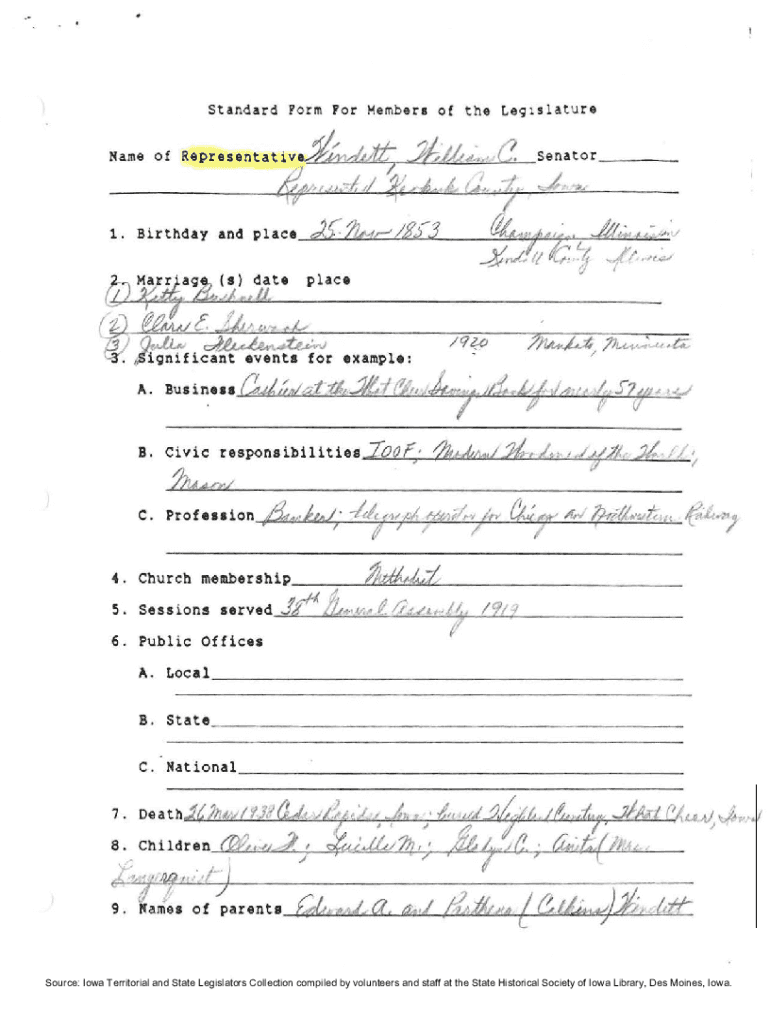 Standard Form For Members of the Legislature
Name of Representative Windett, William C. Senator
Represented Keokuk County, Iowa
1. Birthday and place 25 Nov 1853 Champaign Illinois
Kendall County Illinois
2. Marriage (s) date place
(1) Kitty Bushnell
(2) Clara E. Sherwood
(3) Julia Fleckenstein 1920 Mankato, Minnesota
3. Significant events for example:
A. Business Cashier at the What Cheer Savings Bank for nearly 57 years
B. Civic responsibilities IOOF; Modern Woodmen of the World;
Mason
C. Profession Banker; telegraph operator for Chicago and Northwestern Railway
4. Church membership Methodist
5. Sessions served 38th General Assembly 1919
6. Public Offices
A. Local
B. State
C. National
7. Death 26 Mar 1938 Cedar Rapids, Iowa; buried Highland Cemetery, What Cheer, Iowa
8. Children Oliver; Lucille M.; Gladys C.; Anita (Mrs.
Langerquist)
9. Names of parents Edward A. and Parthena (Calkins) Windett
Source: Iowa Territorial and State Legislators Collection compiled by volunteers and staff at the State Historical Society of Iowa Library, Des Moines, Iowa.